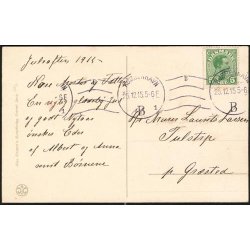 Juleaften 1915.
Kære Moster og Fætter
En rigtig glædelig Jul
og godt Nytaar
ønskes Eder
af Albert og Anna
samt Børnene
25.12.15 5-6E
B
1
B
Hr Murer Laurits Larsen
Tulstrup
pr Græsted